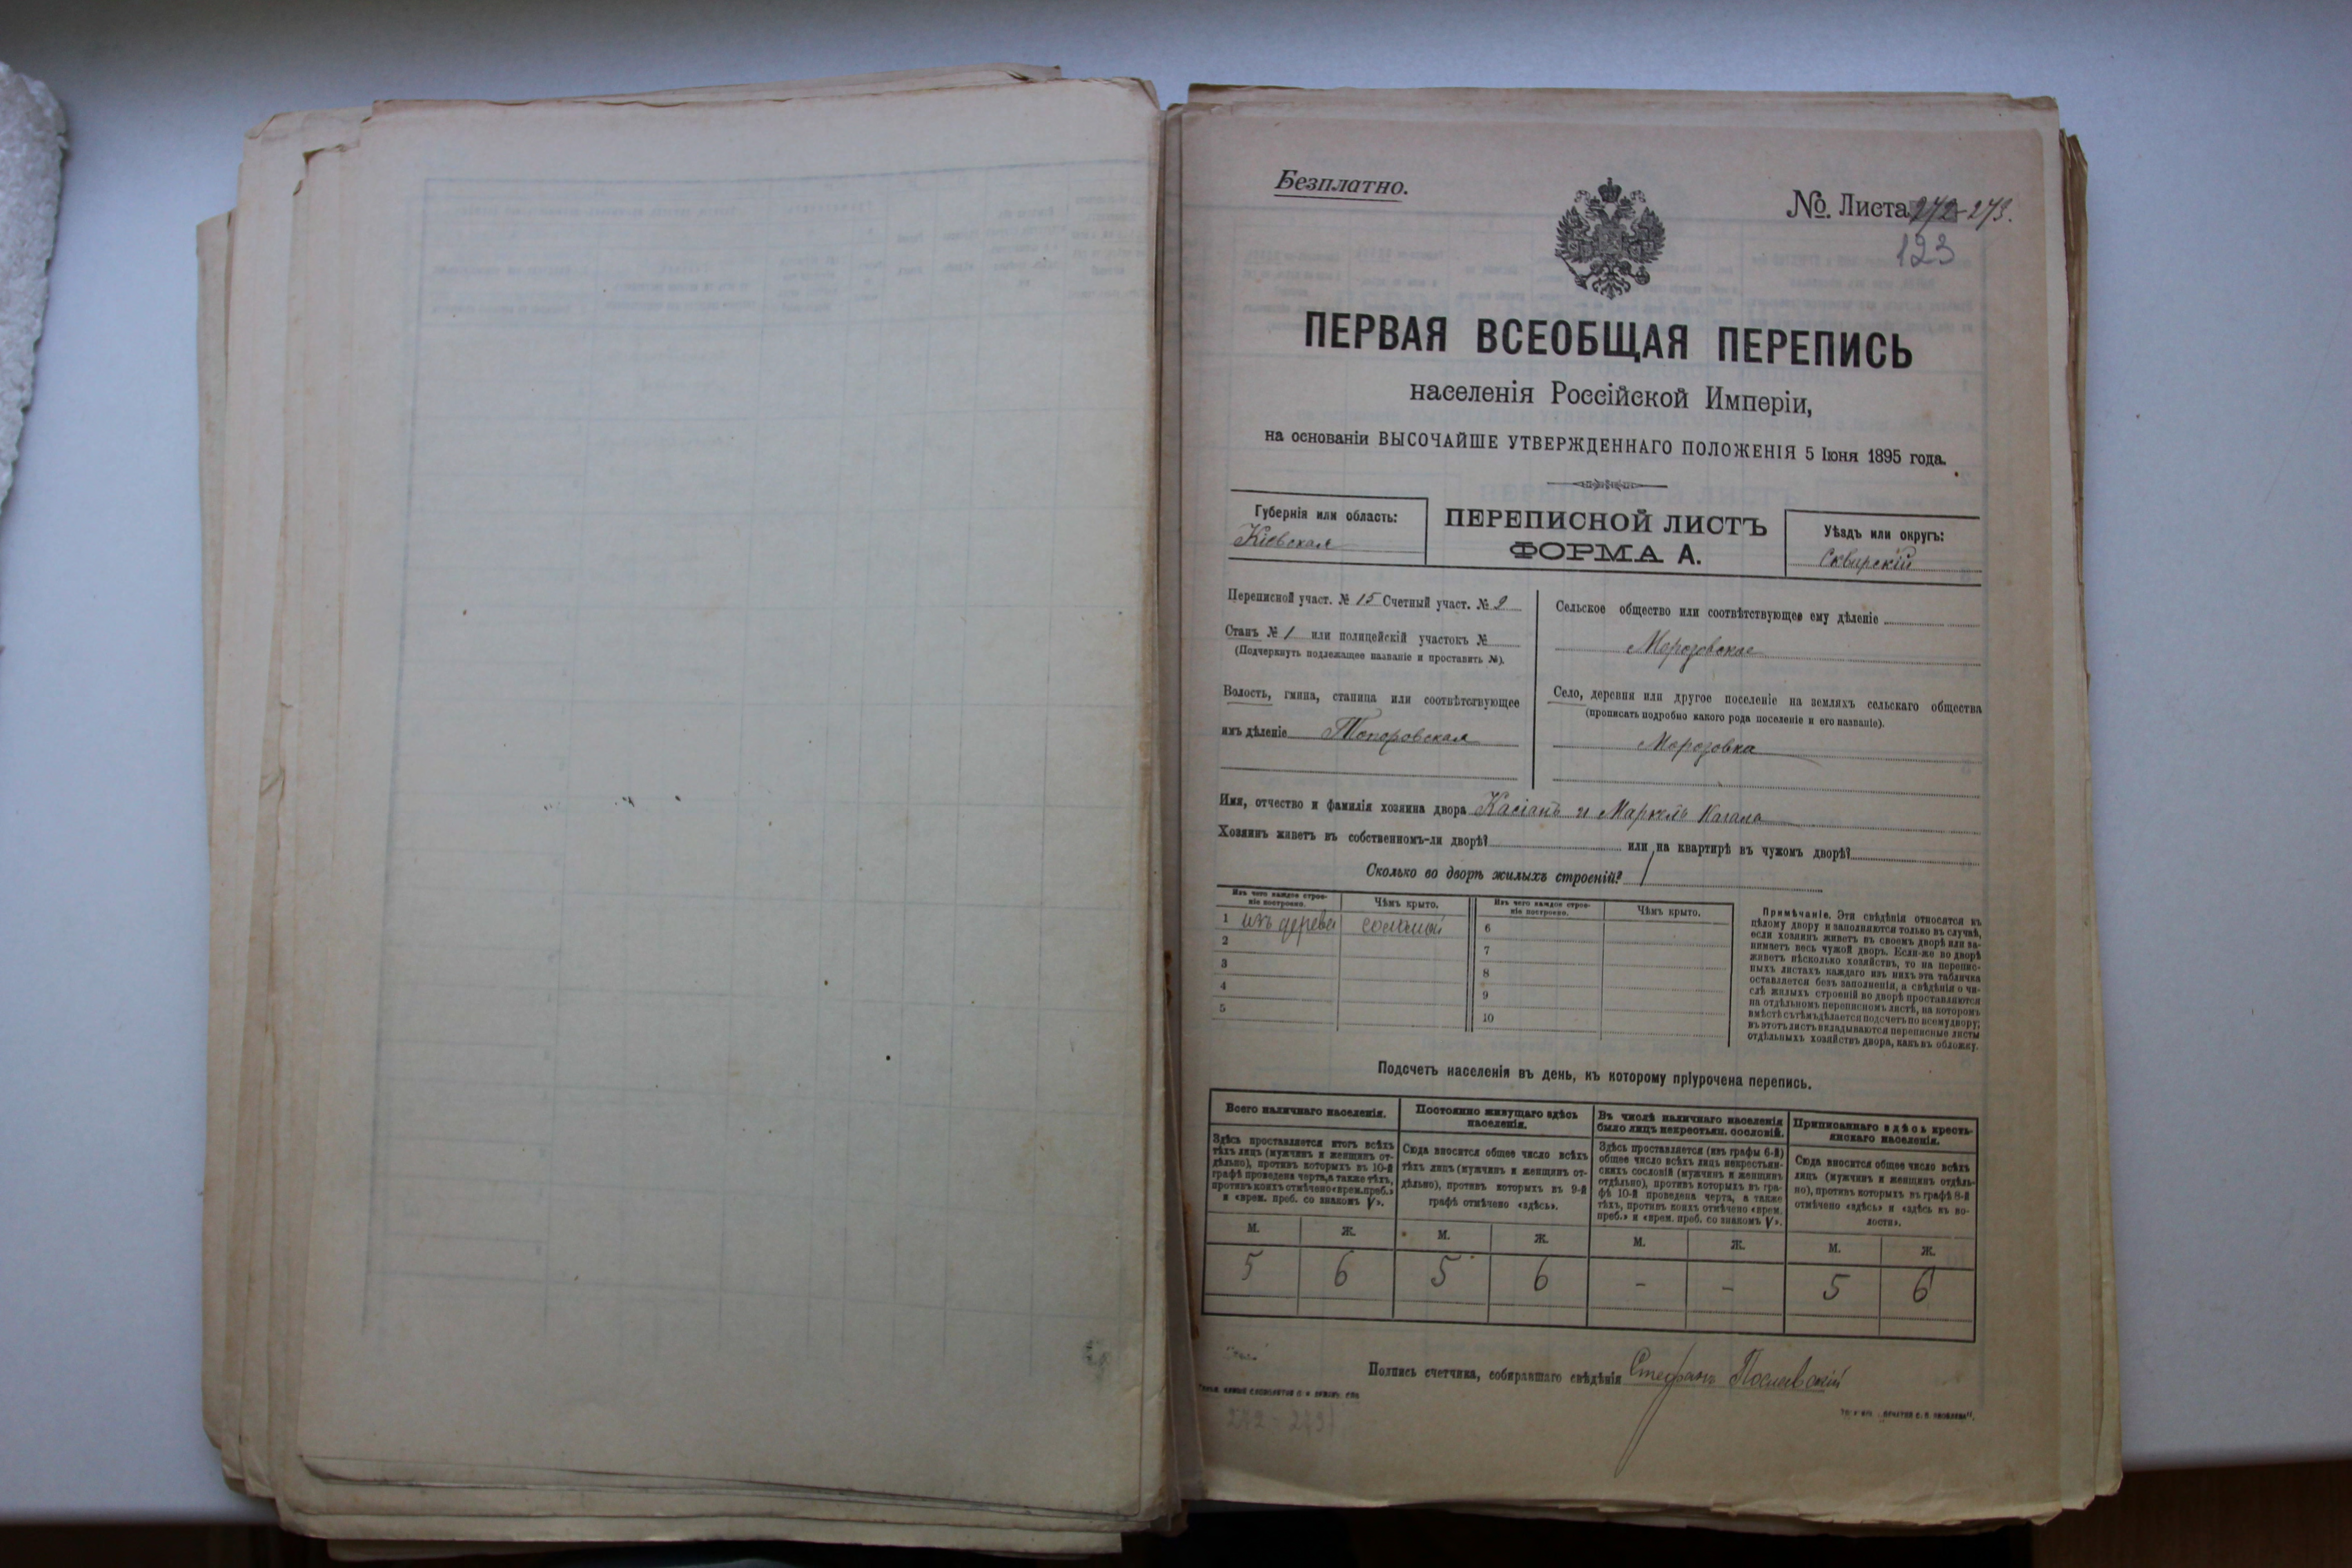 Безплатно.
№. Листа 272-273.
123
ПЕРВАЯ ВСЕОБЩАЯ ПЕРЕПИСЬ
населенія Россійской Имперіи,
на основаніи ВЫСОЧАЙШЕ УТВЕРЖДЕННАГО ПОЛОЖЕНІЯ 5 Іюня 1895 года.
Губернія или область:
Кіевская
ПЕРЕПИСНОЙ ЛИСТЪ
ФОРМА А.
Уѣздъ или округъ:
Сквирскій
Переписной участ. № 15 Счетный участ. № 2
Станъ № 1 или полицейскій участокъ №
(Подчеркнуть подлежащее названіе и проставить №).
Волость, гмина, станица или соотвѣтствующее
имъ дѣленіе Топоровская
Сельское общество или соотвѣтствующее ему дѣленіе
Морозовское
Село, деревня или другое поселеніе на земляхъ сельскаго общества
(прописать подробно какого рода поселеніе и его названіе).
Морозовка
Имя, отчество и фамилія хозяина двора Касіанъ и Маркелъ
Хозяинъ живетъ въ собственномъ-ли дворѣ? или на квартирѣ въ чужомъ дворѣ?
Сколько во дворѣ жилыхъ строеній? 1
Изъ чего каждое строе-
ніе построено.
Чѣмъ крыто.
Изъ чего каждое строе-
ніе построено.
Чѣмъ крыто.
1 изъ дерева соломой
2
3
4
5
6
7
8
9
10
Примѣчаніе. Эти свѣдѣнія относятся къ
цѣлому двору и заполняются только въ случаѣ,
если хозяинъ живетъ въ своемъ дворѣ или за-
нимаетъ весь чужой дворъ. Если-же во дворѣ
живетъ нѣсколько хозяйствъ, то на перепис-
ныхъ листахъ каждаго изъ нихъ эта табличка
оставляется безъ заполненія, а свѣдѣнія о чи-
слѣ жилыхъ строеній во дворѣ проставляются
на отдѣльномъ переписномъ листѣ, на которомъ
вмѣстѣ съ тѣмъ дѣлается подсчетъ по всему двору;
въ этотъ листъ вкладываются переписные листы
отдѣльныхъ хозяйствъ двора, какъ въ обложку.
Подсчетъ населенія въ день, къ которому пріурочена перепись.
Всего наличнаго населенія.
Здѣсь проставляется итогъ всѣхъ
тѣхъ лицъ (мужчинъ и женщинъ от-
дѣльно), противъ которыхъ въ 10-й
графѣ проведена черта, а также тѣхъ,
противъ коихъ отмѣчено «врем. преб.»
и «врем. преб. со знакомъ V».
Постоянно живущаго здѣсь
населенія.
Сюда вносится общее число всѣхъ
тѣхъ лицъ (мужчинъ и женщинъ от-
дѣльно), противъ которыхъ въ 9-й
графѣ отмѣчено «здѣсь».
Въ числѣ наличнаго населенія
было лицъ некрестьян. сословій.
Здѣсь проставляется (изъ графы 6-й)
общее число всѣхъ лицъ некрестьян-
скихъ сословій (мужчинъ и женщинъ
отдѣльно), противъ которыхъ въ гра-
фѣ 10-й проведена черта, а также
тѣхъ, противъ коихъ отмѣчено «врем.
преб.» и «врем. преб. со знакомъ V».
Приписаннаго здѣсь кресть-
янскаго населенія.
Сюда вносится общее число всѣхъ
лицъ (мужчинъ и женщинъ отдѣль-
но), противъ которыхъ въ графѣ 8-й
отмѣчено «здѣсь» и «здѣсь въ во-
лости».
М. Ж. М. Ж. М. Ж. М. Ж.
5 6 5 6 - - 5 6
Подпись счетчика, собиравшаго свѣдѣнія Стефанъ
272-273